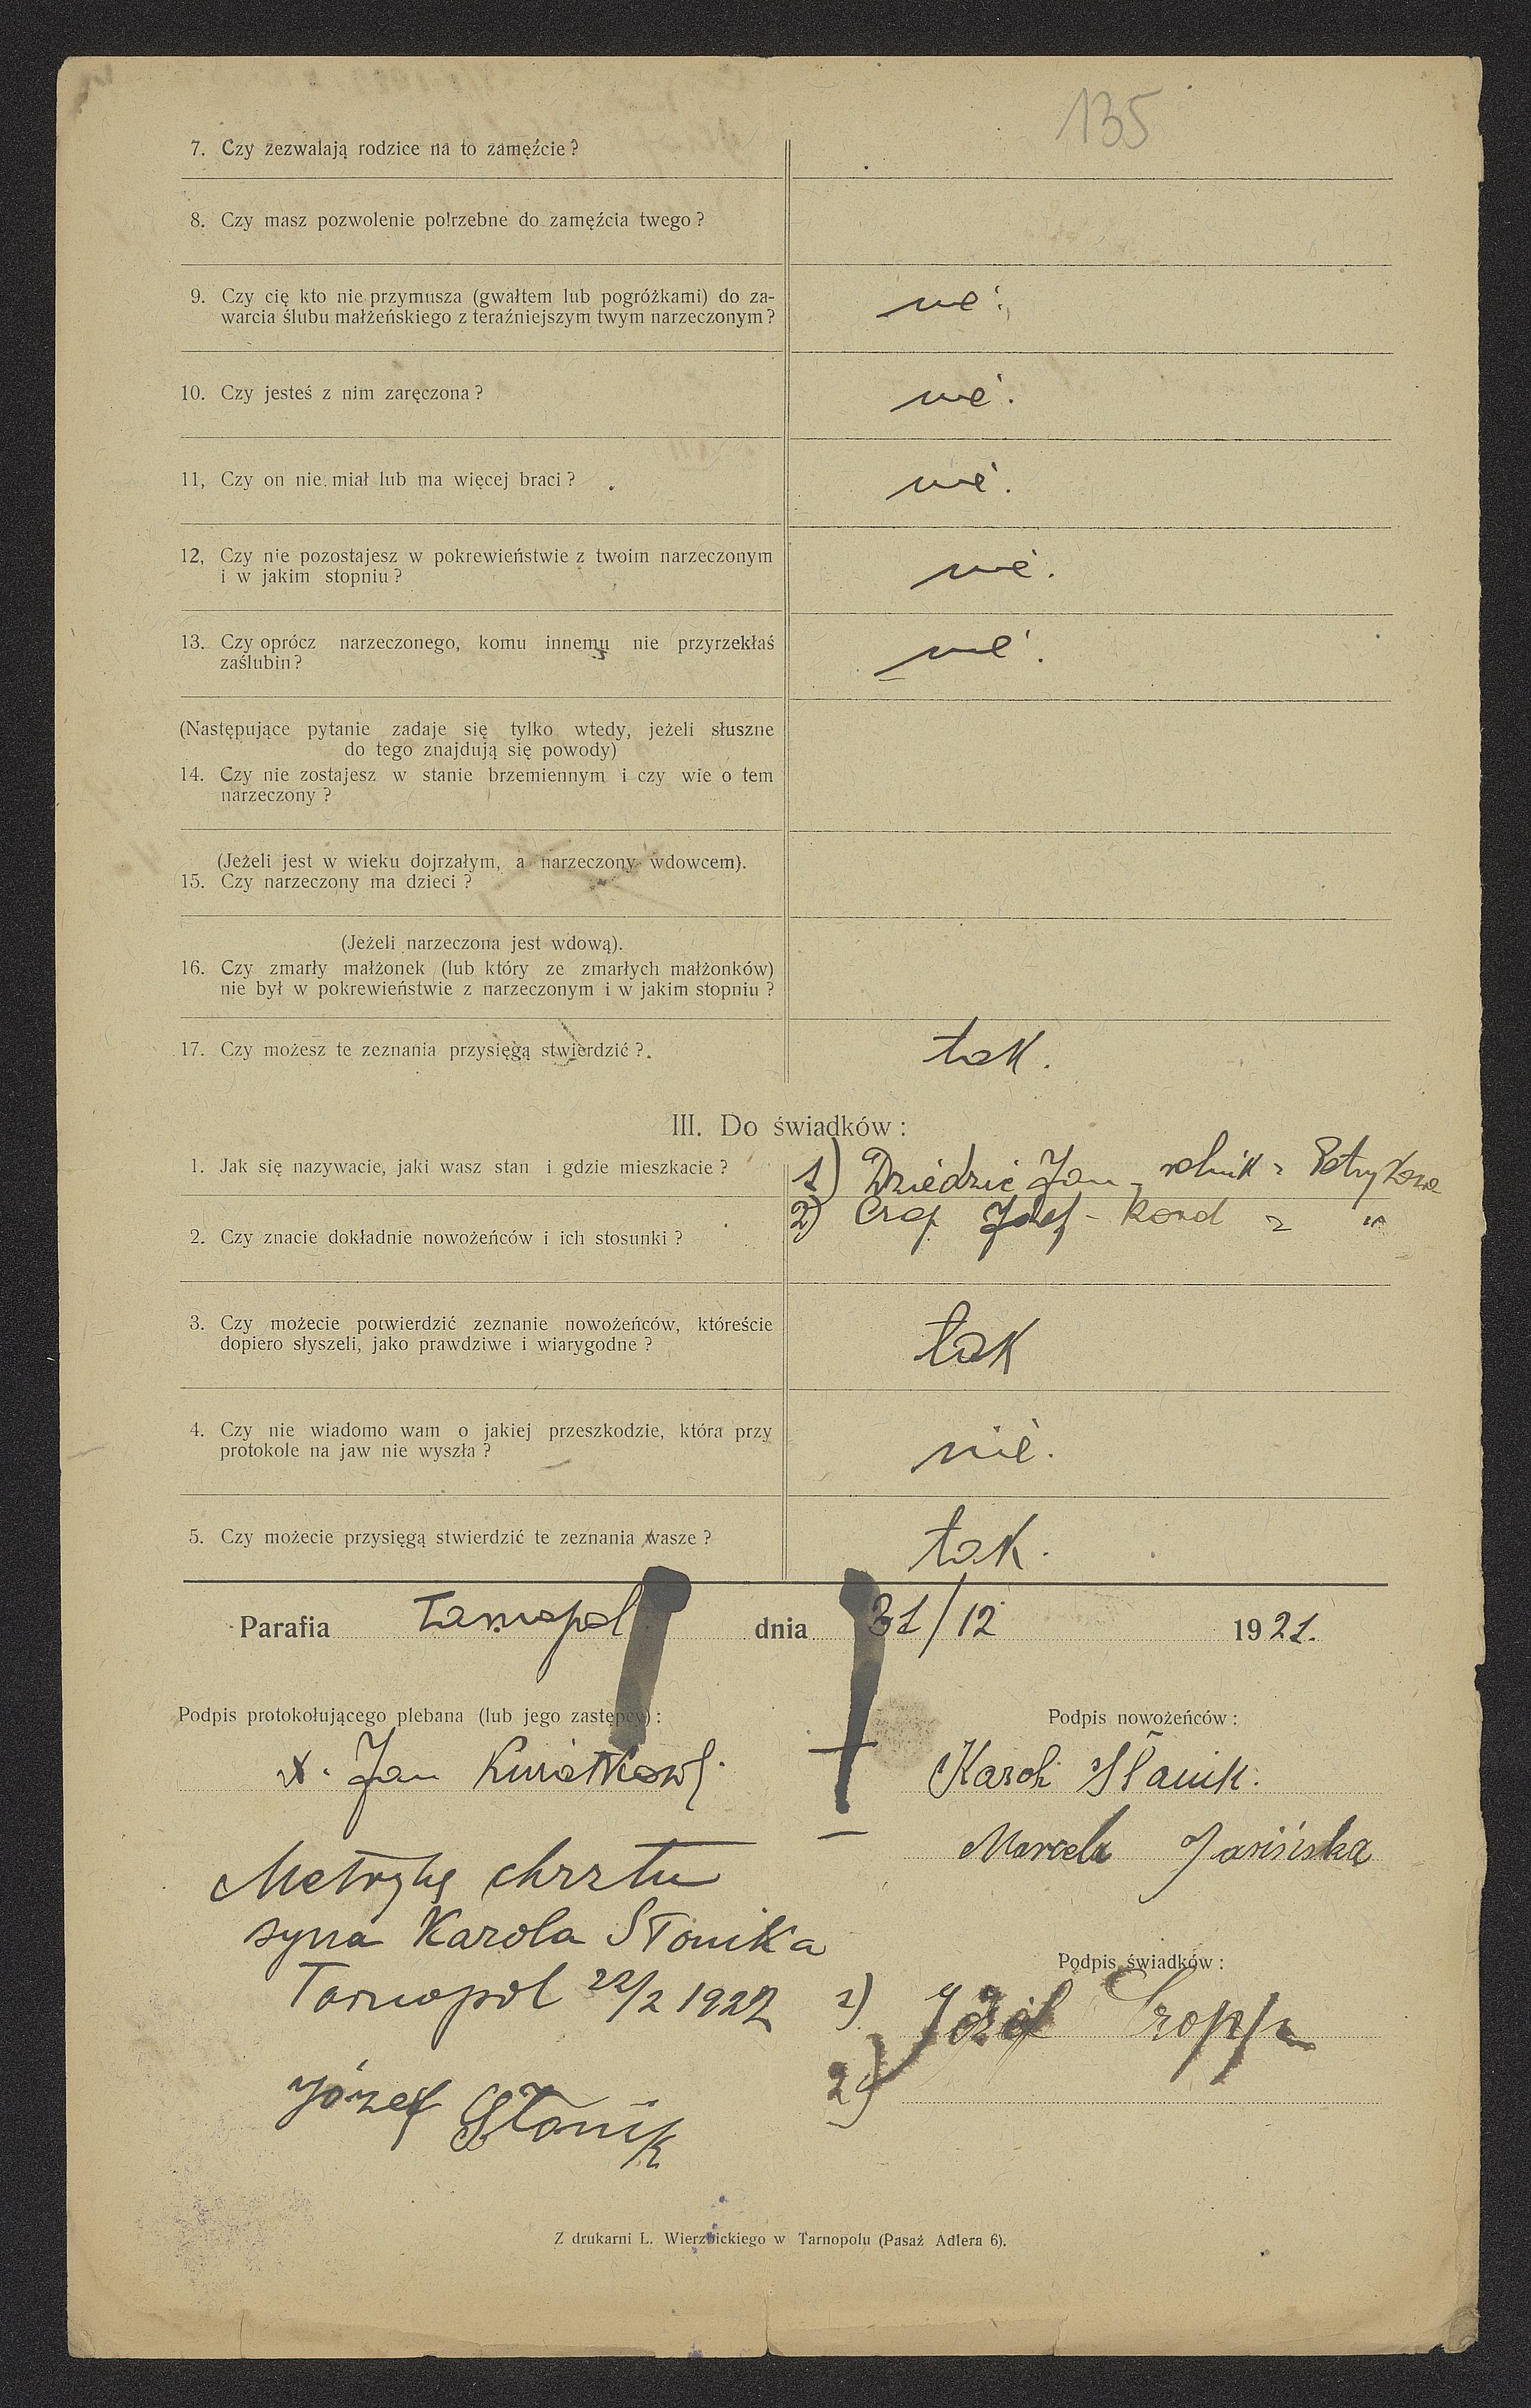 135
7. Czy zezwalają rodzice na to zamęźcie?
8. Czy masz pozwolenie potrzebne do zamęźcia twego?
9. Czy cię kto nie przymusza (gwałtem lub pogróżkami) do za-
warcia ślubu małżeńskiego z teraźniejszym twym narzeczonym?
nie.
10. Czy jesteś z nim zaręczona?
nie.
11, Czy on nie miał lub ma więcej braci?
nie.
12, Czy nie pozostajesz w pokrewieństwie z twoim narzeczonym
i w jakim stopniu?
nie.
13. Czy oprócz narzeczonego, komu innemu nie przyrzekłaś
zaślubin?
nie.
(Następujące pytanie zadaje się tylko wtedy, jeżeli słuszne
do tego znajdują się powody)
14. Czy nie zostajesz w stanie brzemiennym i czy wie o tem
narzeczony?
(Jeżeli jest w wieku dojrzałym, a narzeczony wdowcem).
15. Czy narzeczony ma dzieci?
(Jeżeli narzeczona jest wdową).
16. Czy zmarły małżonek (lub który ze zmarłych małżonków)
nie był w pokrewieństwie z narzeczonym i w jakim stopniu?
17. Czy możesz te zeznania przysięgą stwierdzić?
tak.
III. Do świadków:
1. Jak się nazywacie, jaki wasz stan i gdzie mieszkacie?
1) Dziedzic Jan - rolnik z Petrykowa
2) Józef - z "
2. Czy znacie dokładnie nowożeńców i ich stosunki?
3. Czy możecie potwierdzić zeznanie nowożeńców, któreście
dopiero słyszeli, jako prawdziwe i wiarygodne?
tak
4. Czy nie wiadomo wam o jakiej przeszkodzie, która przy
protokole na jaw nie wyszła?
nie.
5. Czy możecie przysięgą stwierdzić te zeznania wasze?
tak.
Parafia Tarnopol dnia 31/12 1921.
Podpis protokołującego plebana (lub jego zastępcy):
Podpis nowożeńców:
x. Jan Kwiatkowski
Karol Słonik.
Marcela Jasińska
Metrykę chrztu
syna Karola Słonika
Tarnopol 22/2 1922
Józef Słonik
Podpis świadków:
1) Józef
2)
Z drukarni L. Wierzbickiego w Tarnopolu (Pasaż Adlera 6).